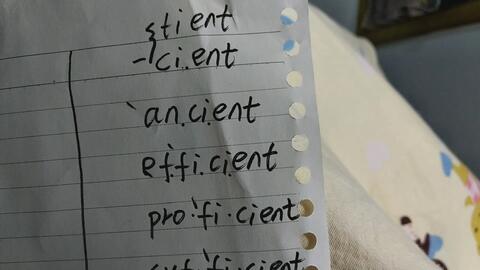 tient
-cient
`an.ci.ent
ef.fi.ci.ent
pro.`fi.cient